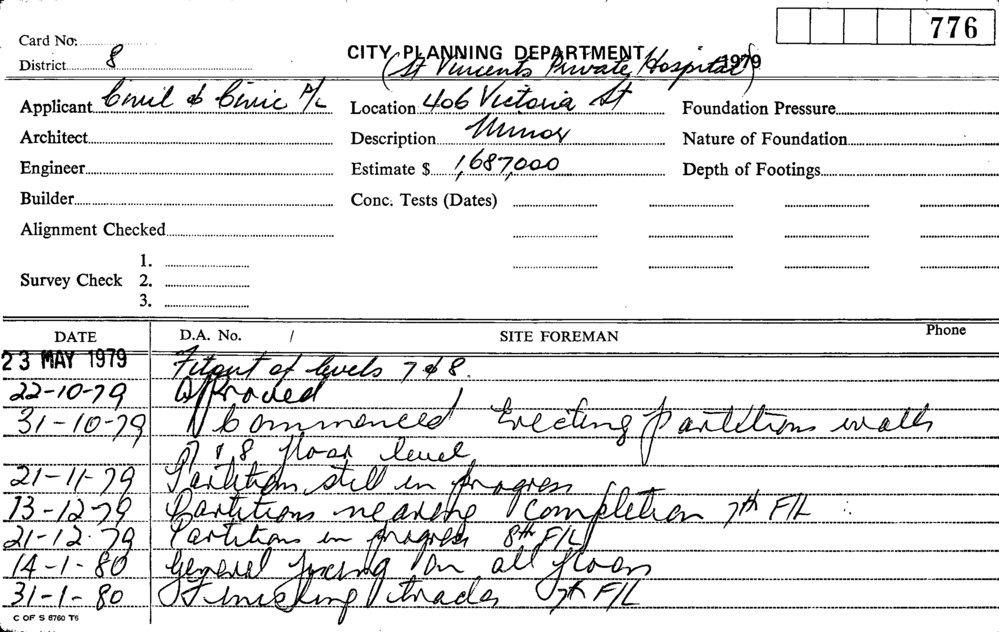 776
Card No:
District 8
CITY PLANNING DEPARTMENT 1979
(St Vincents Private Hospital)
Applicant Civil & Civic P/L Location 406 Victoria St Foundation Pressure
Architect Description Minor Nature of Foundation
Engineer Estimate $ 1,687,000 Depth of Footings
Builder Conc. Tests (Dates)
Alignment Checked
Survey Check 1.
2.
3.
DATE D.A. No. / SITE FOREMAN Phone
23 MAY 1979 Fitout of levels 7 & 8.
22-10-79 Approved
31-10-79 Commenced Erecting partitions walls
7 & 8 floor level
21-11-79 Partitions still in progress
13-12-79 Partitions nearing completion 7th F/L
21-12-79 Partitions in progress 8th F/L
14-1-80 General fixing on all floors
31-1-80 Finishing trades 7th F/L
C OF S 8760 T6